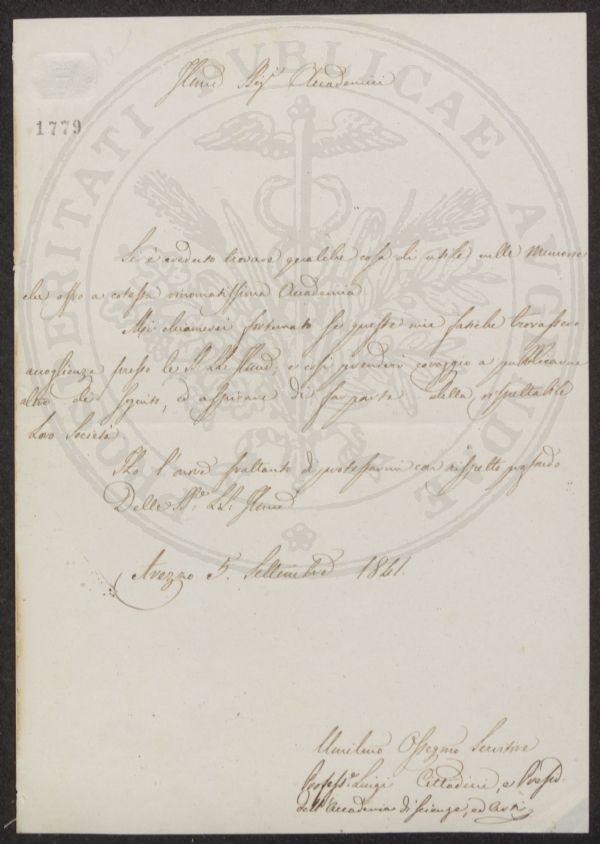 1779
Illmi Sigi Accademici
Si è creduto trovare qualche cosa di utile nelle Memorie
che offro a cotesta rinomatissima Accademia
Mi chiamerei fortunato se queste mie fatiche trovassero
accoglienza presso le SS. LL. Illme, e così prenderei coraggio a pubblicarne
altre in seguito, ed aspirare di far parte della rispettabile
Loro Società
Ho l'onore frattanto di protestarmi con rispetto profondo
Delle SS. LL. Illme
Arezzo 5. Settembre 1841.
Umilmo Ossegmo Servitore
Professr Luigi Cittadini, e Presid.
dell'Accademia di Scienze, ed Arti
PROSPERITATI PVBLICAE AVGENDAE